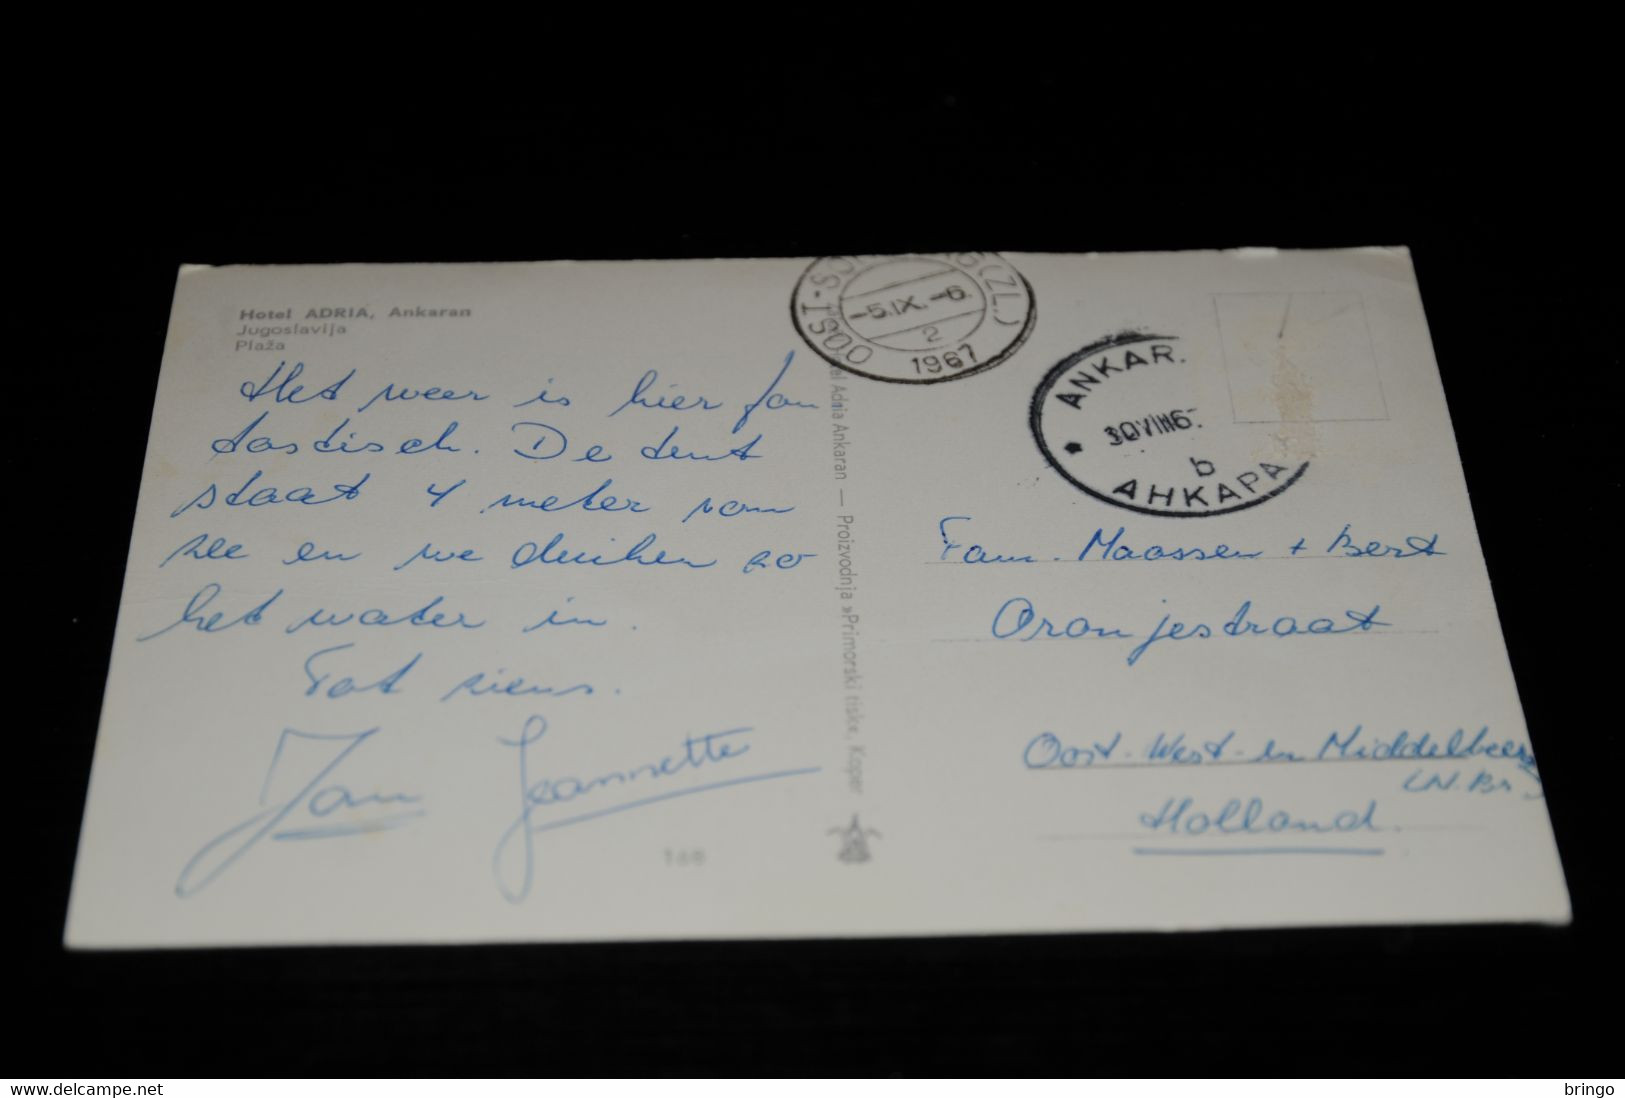 Hotel ADRIA, Ankaran
Jugoslavija
Plaža
Het weer is hier fan
tastisch. De tent
staat 4 meter van
zee en we duiken zo
het water in.
Tot ziens.
Jan Jeannette
168
Adria Ankaran — Proizvodnja »Primorski tiske, Koper
OOST-SOU (ZL.)
-5.IX.-6.
2
1967
ANKAR.
30VIII6
b
АНКАРА
Fam. Maassen + Bert
Oranjestraat
Oost-West-en Middelbeers
(N.Br.)
Holland.
© Delcampe
bringo